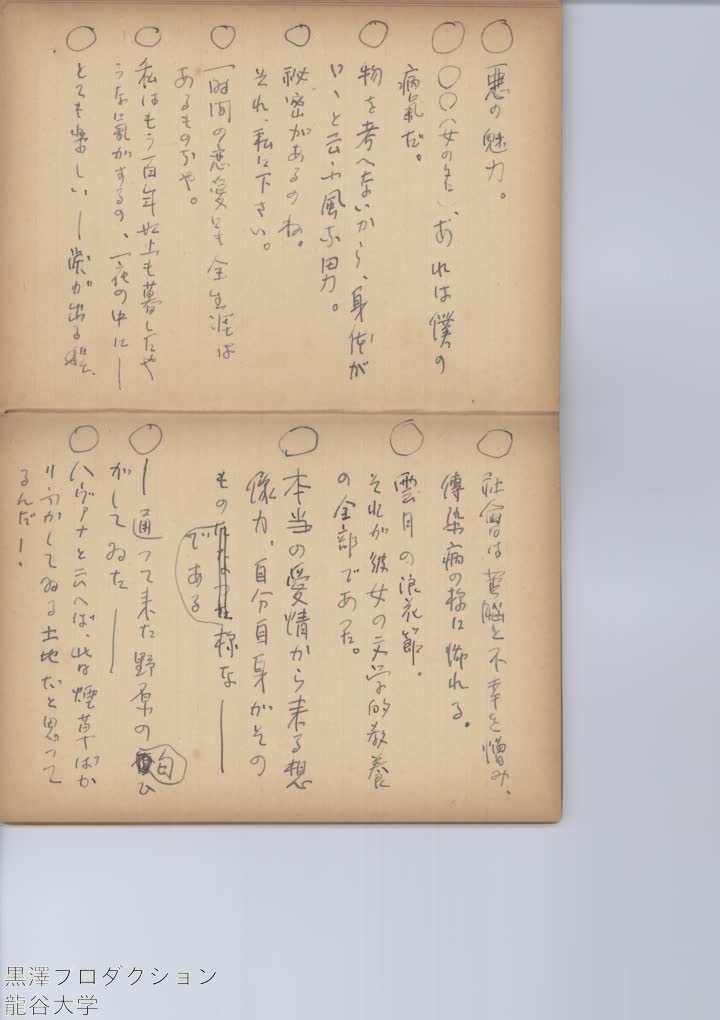 ○ 悪の魅力。
○ ○○(女の名)、あれは僕の
病氣だ。
○ 物を考へないから、身体が
いゝと云ふ風な男。
○ 秘密があるのね。
それ、私に下さい。
○ 一時間の恋愛にも全生涯は
あるものぢや。
○ 私はもう百年以上も暮したや
うな氣がするの、一夜の中に──
○ とても楽しい──涙が出る程。
○ 社會は苦腦と不幸を憎み、
傳染病の様に怖れる。
○ 雲月の浪花節。
それが彼女の文学的教養
の全部であつた。
○ 本当の愛情から来る想
像力、自分自身がその
もの
である
様な──
○ ──通つて来た野原の
白
ひ
がしてゐた──
○ ハヴアナと云へば、皆煙草ばか
りふかしてゐる土地だと思つて
るんだ!
黒澤プロダクション
龍谷大学